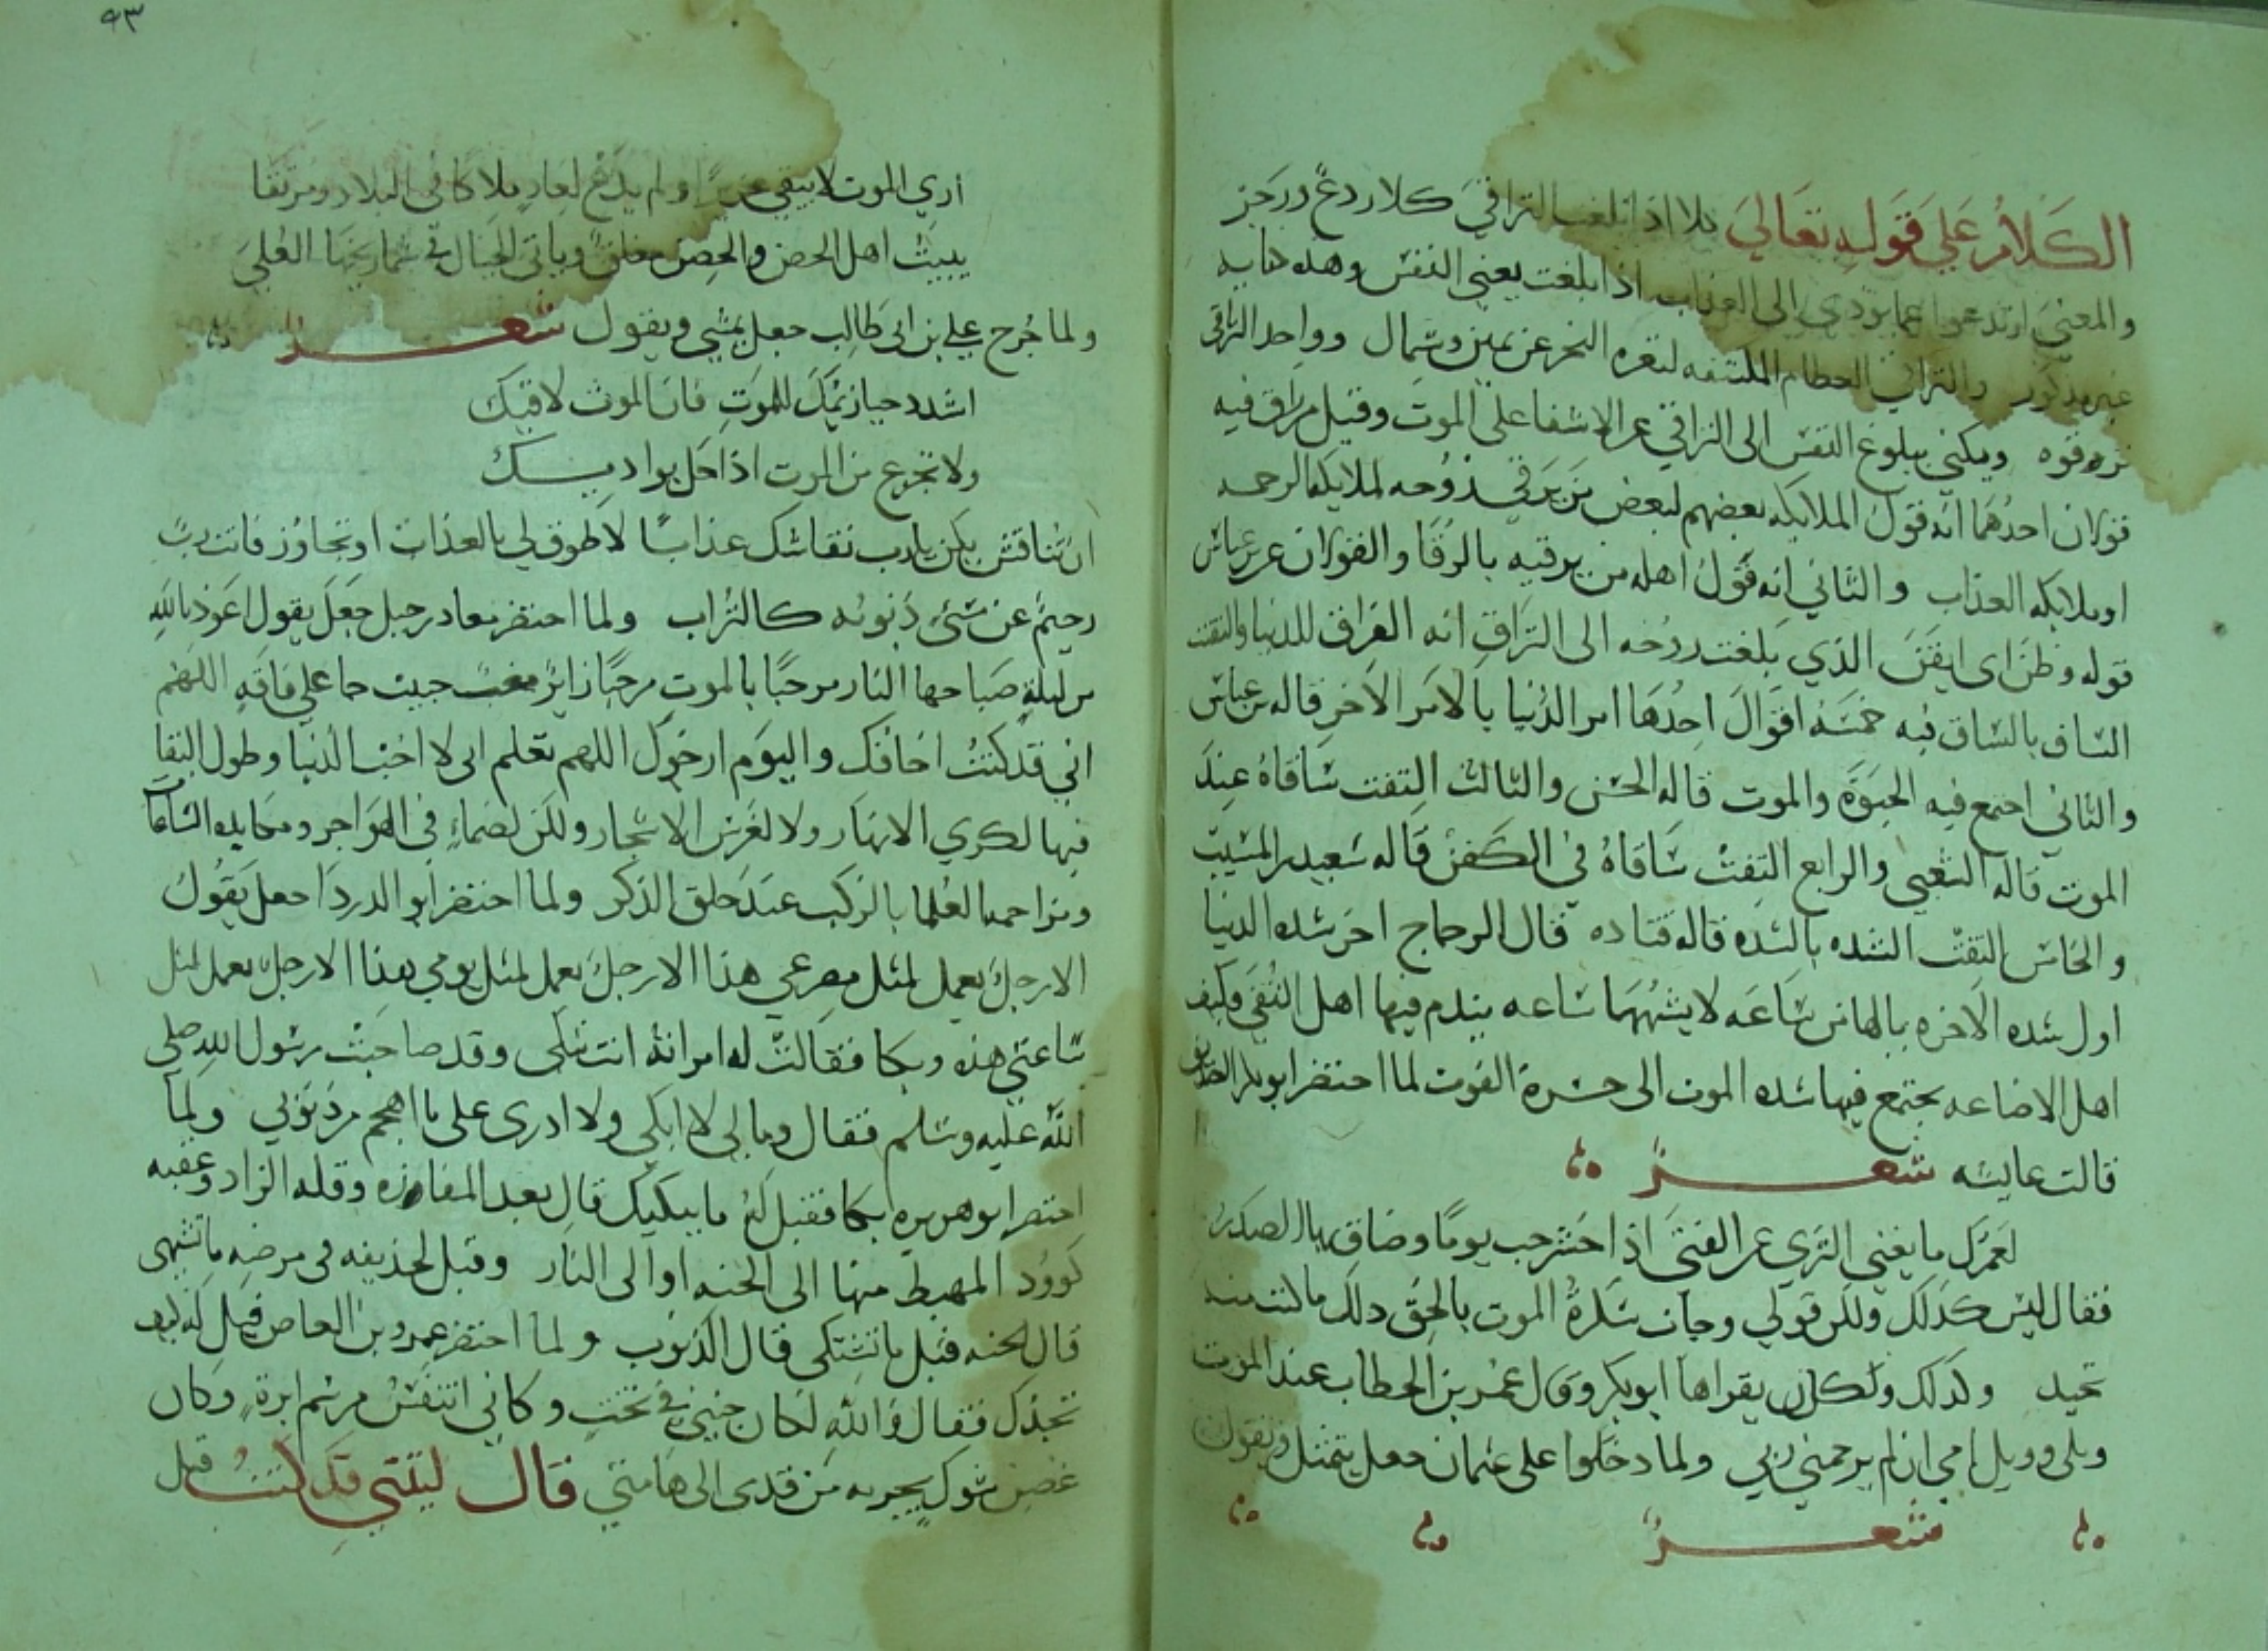 الكلام على قوله تعالى كلا اذا بلغت التراقي كلا ردع وزجر
والمعنى ارتدعوا عما يودي الى العذاب اذا بلغت يعني النفس وهذه كنايه
غير مذكور والتراقي العظام المكتنفه لنقره النحر عن يمين وشمال وواحد التراقي
ترقوه ويكنى ببلوغ النفس الى التراقي عن الاشفا على الموت وقيل من راق فيه
قولان احدهما انه قول الملايكه بعضهم لبعض من يرقى بروحه لملايكه الرحمه
او ملايكه العذاب والثاني انه قول اهله من يرقيه بالرقا والقولان عن ابن عباس
قوله وظن اى ايقن الذي بلغت روحه الى التراقي انه الفراق للدنيا والتفت
الساق بالساق فيه خمسة اقوال احدها امر الدنيا بالامر الاخر قاله بن عباس
والثاني اجتمع فيه الحيوة والموت قاله الحسن والثالث التفت ساقاه عند
الموت قاله الشعبي والرابع التفت ساقاه في الكفن قاله سعيد بن المسيب
والخامس التفت الشده بالشده قاله قتاده قال الزجاج اخر شده الدنيا
اول شده الاخره يالها من ساعه لا يشبهها ساعه يندم فيها اهل التقى وكيف
اهل الاضاعه يجتمع فيها شده الموت الى حسرة الفوت لما احتضر ابو بكر
قالت عايشه شعر
لعمرك ما يغني الثري عن الفتى اذا حشرجت يوما وضاق بها الصدر
فقال ليس كذلك ولكن قولي وجات سكرة الموت بالحق ذلك ما كنت منه
تحيد وكذلك وكان يقراها ابو بكر وقال عمر بن الخطاب عند الموت
ويلي وويل امي ان لم يرحمني ربي ولما دخلوا على عثمان جعل يتمثل ويقول
شعر
٩٣
ارى الموت لا يبقي عزيزا ولم يدع لعاد ملاكا في البلاد ومرتقا
يبيت اهل الحصن والحصن مغلق وياتي الجبال في شماريخها العلى
ولما جرح علي بن ابى طالب جعل يمشي ويقول شعر
اشدد حيازيمك للموت فان الموت لاقيك
ولا تجزع من الموت اذا حل بواديك
ان تناقش يكن يا رب نقاشك عذابا لا طوق لي بالعذاب او تجاوز فانت رب
رحيم عن مسئ ذنوبه كالتراب ولما احتضر معاد بن جبل جعل يقول اعوذ بالله
من ليلة صباحها النار مرحبا بالموت مرحبا زاير مغب حبيب جا على فاقه اللهم
اني قد كنت اخافك واليوم ارجوك اللهم تعلم اني لا احب الدنيا وطول البقا
فيها لكري الانهار ولا لغرس الاشجار ولكن لضماء في الهواجر ومكابده الساعات
ومزاحمه العلما بالركب عند حلق الذكر ولما احتضر ابو الدردا جعل يقول
الا رجل يعمل لمثل مصرعي هذا الا رجل يعمل لمثل يومي هذا الا رجل يعمل لمثل
ساعتي هذه وبكا فقالت له امراته انت تبكي وقد صاحبت رسول الله صلى
الله عليه وسلم فقال ومالي لا ابكي ولا ادرى على ما اهجم من ذنوبي ولما
احتضر ابو هريره بكا فقيل له ما يبكيك قال بعد المفازه وقله الزاد وعقبه
كوود المهبط منها الى الجنه او الى النار وقيل لحذيفه في مرضه ما تشتهى
قال الجنه قيل ما تشتكى قال الذنوب ولما احتضر عمرو بن العاص قيل له كيف
تجدك فقال والله لكان جنبي في تخت وكاني اتنفس من سم ابرة وكان
غصن شوك يجر به من قدمى الى هامتي قال ليتني قد كنت قبل